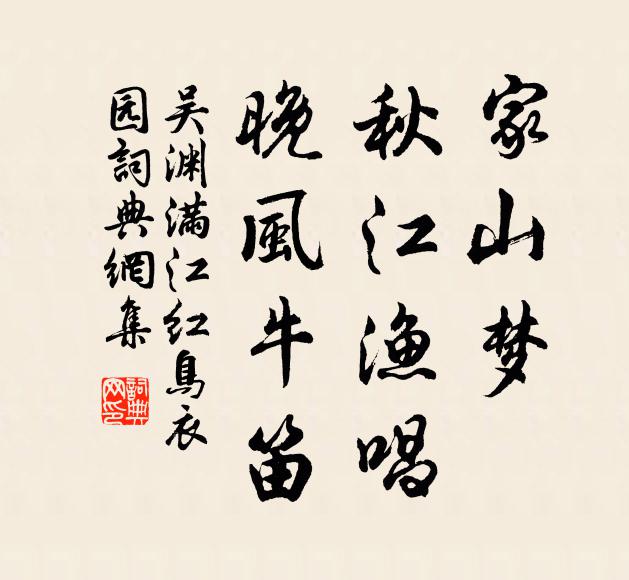 家山梦
秋江渔唱
晚風牛笛
吴渊满江红烏衣
园詞典網集
詞典
网印